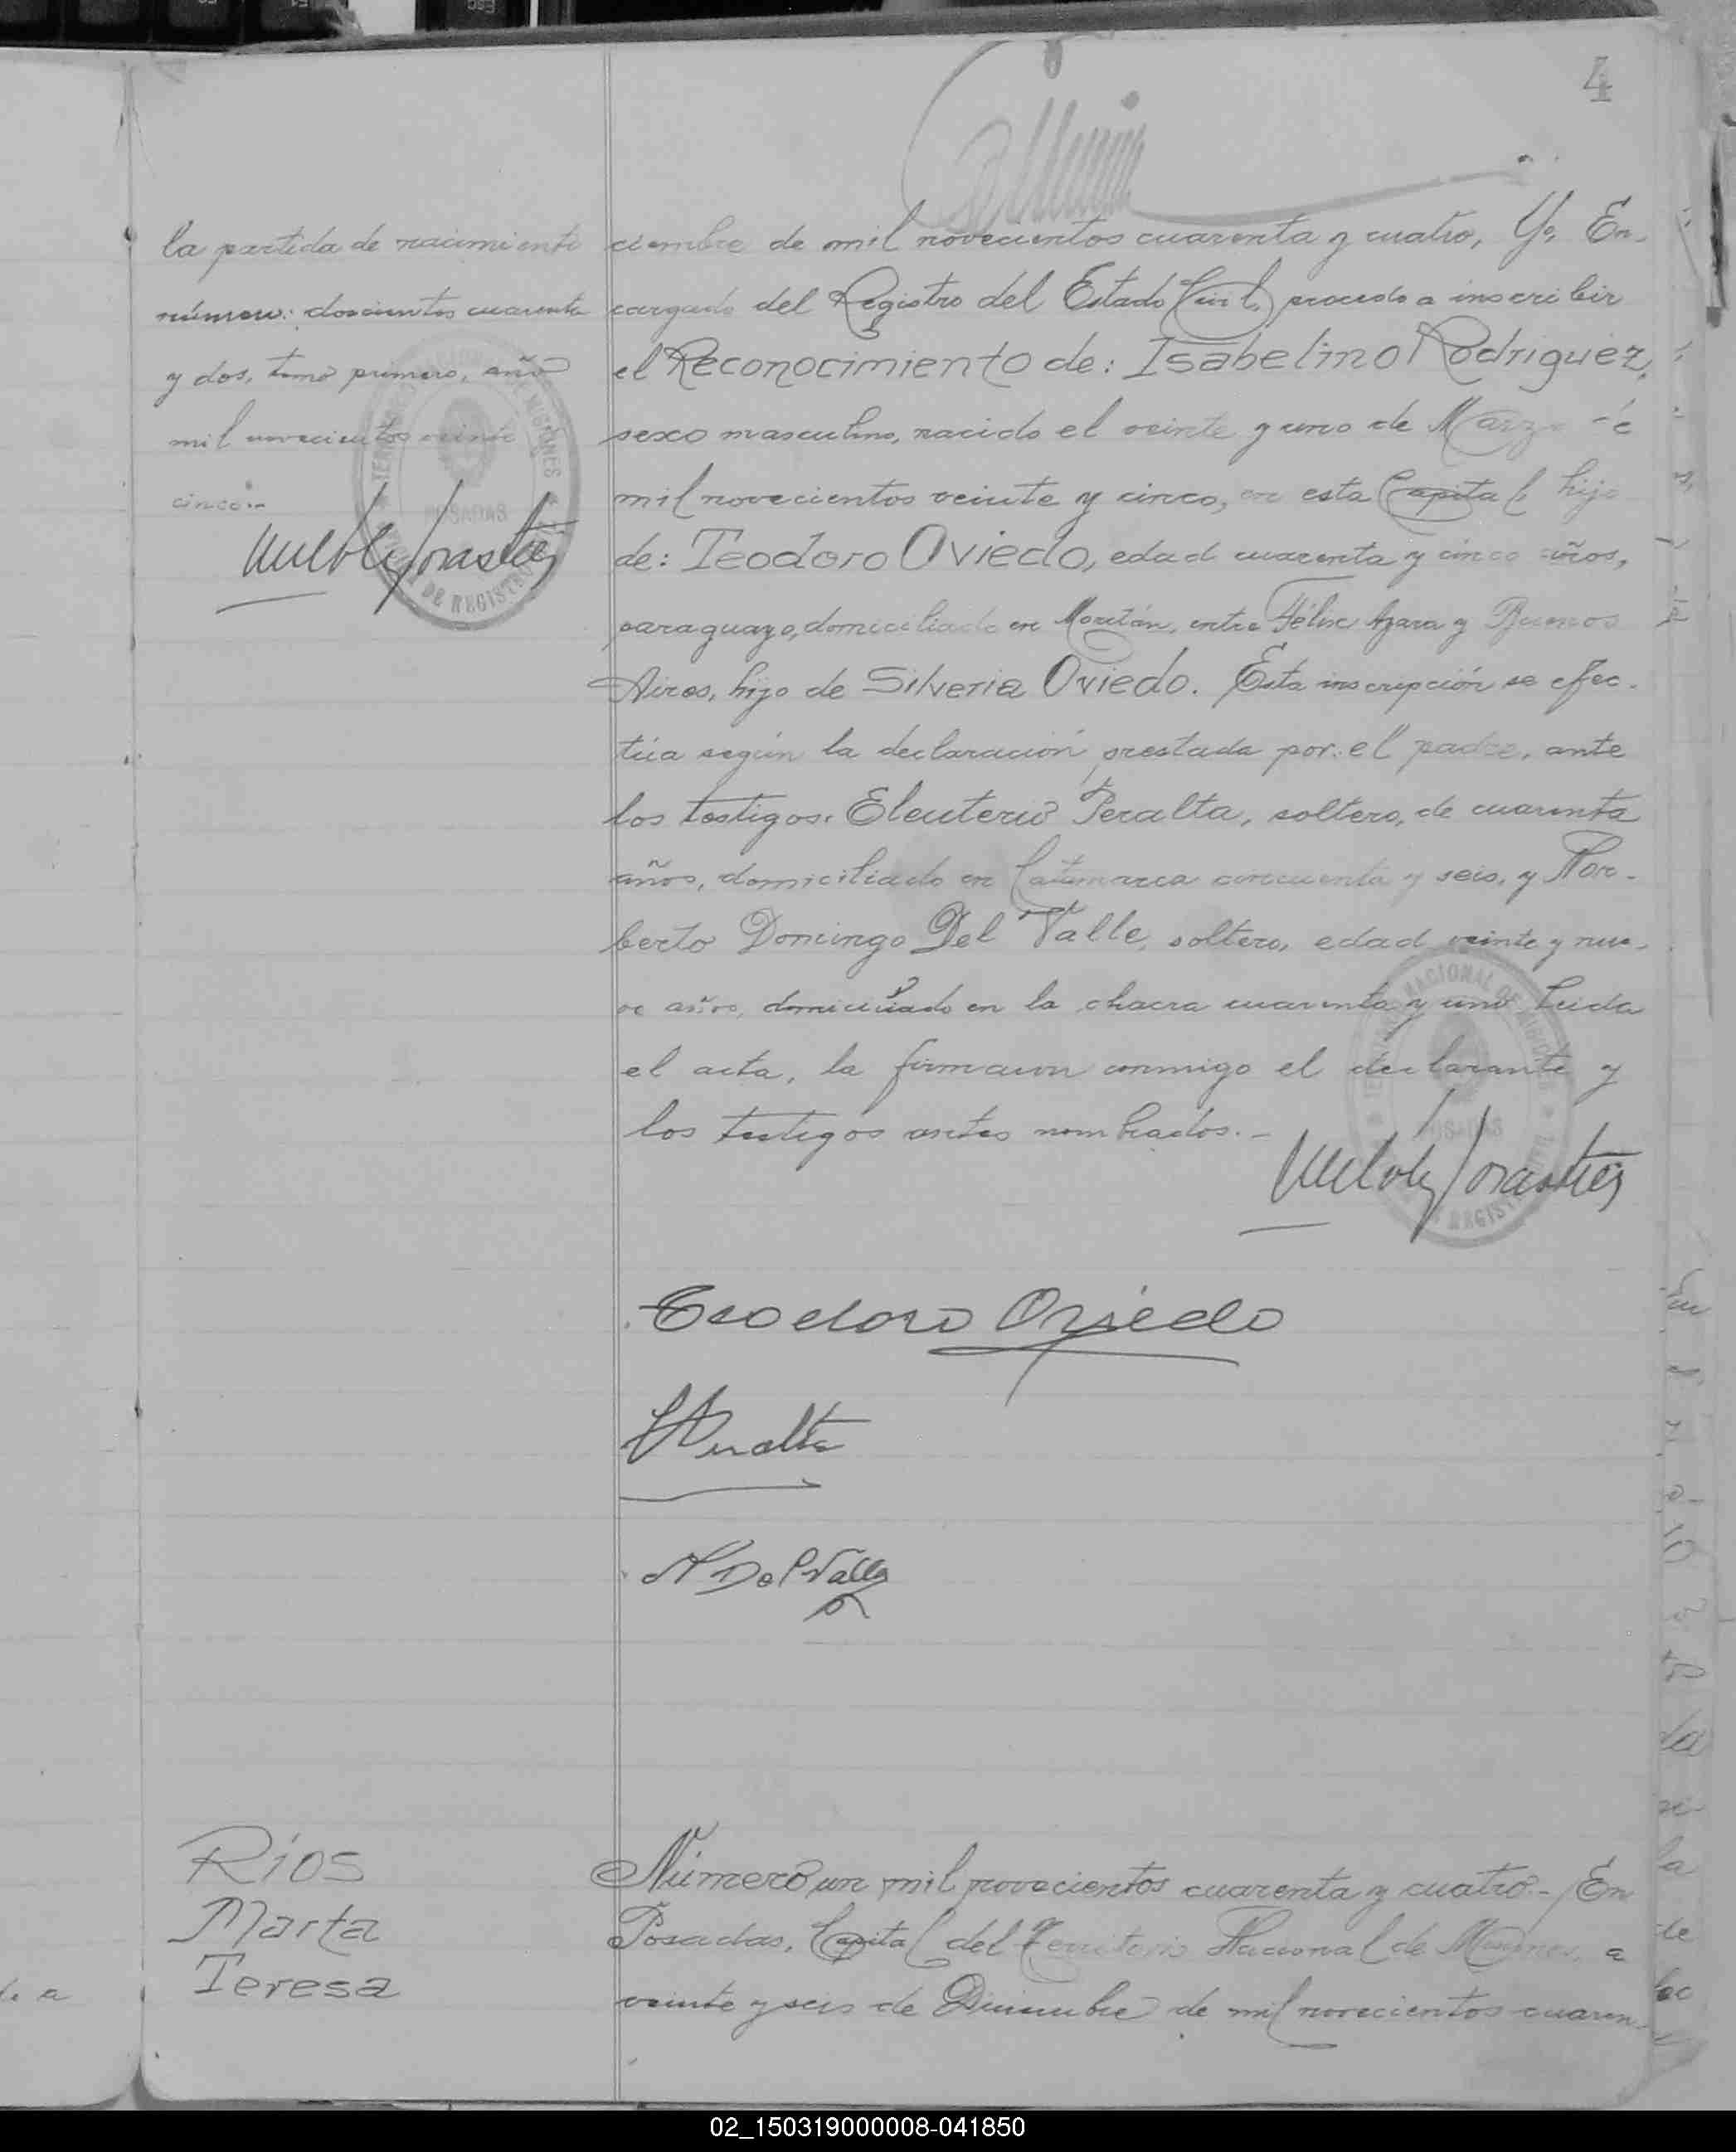 4
la partida de nacimiento
número: doscientos cuarenta
y dos, tomo primero, año
mil novecientos veinte
cinco.-
ciembre de mil novecientos cuarenta y cuatro, Yo, En-
cargado del Registro del Estado Civil, procedo a inscribir
el Reconocimiento de: Isabelino Rodriguez,
sexo masculino, nacido el veinte y uno de Marzo de
mil novecientos veinte y cinco, en esta Capital, hijo
de: Teodoro Oviedo, edad cuarenta y cinco años,
paraguayo, domiciliado en entre Félix Azara y Buenos
Aires, hijo de Silveria Oviedo. Esta inscripción se efec-
túa según la declaración prestada por el padre, ante
los testigos: Eleuterio Peralta, soltero, de cuarenta
años, domiciliado en Catamarca cincuenta y seis, y Nor-
berto Domingo Del Valle, soltero, edad veinte y nue-
ve años, domiciliado en la chacra cuarenta y uno. Leida
el acta, la firmaron conmigo el declarante y
los testigos antes nombrados.-
Teodoro Oviedo
Peralta
N Del Valle
Ríos
Marta
Teresa
Número un mil novecientos cuarenta y cuatro.- En
Posadas, Capital del Territorio Nacional de Misiones, a
veinte y seis de Diciembre de mil novecientos cuaren-
02_150319000008-041850